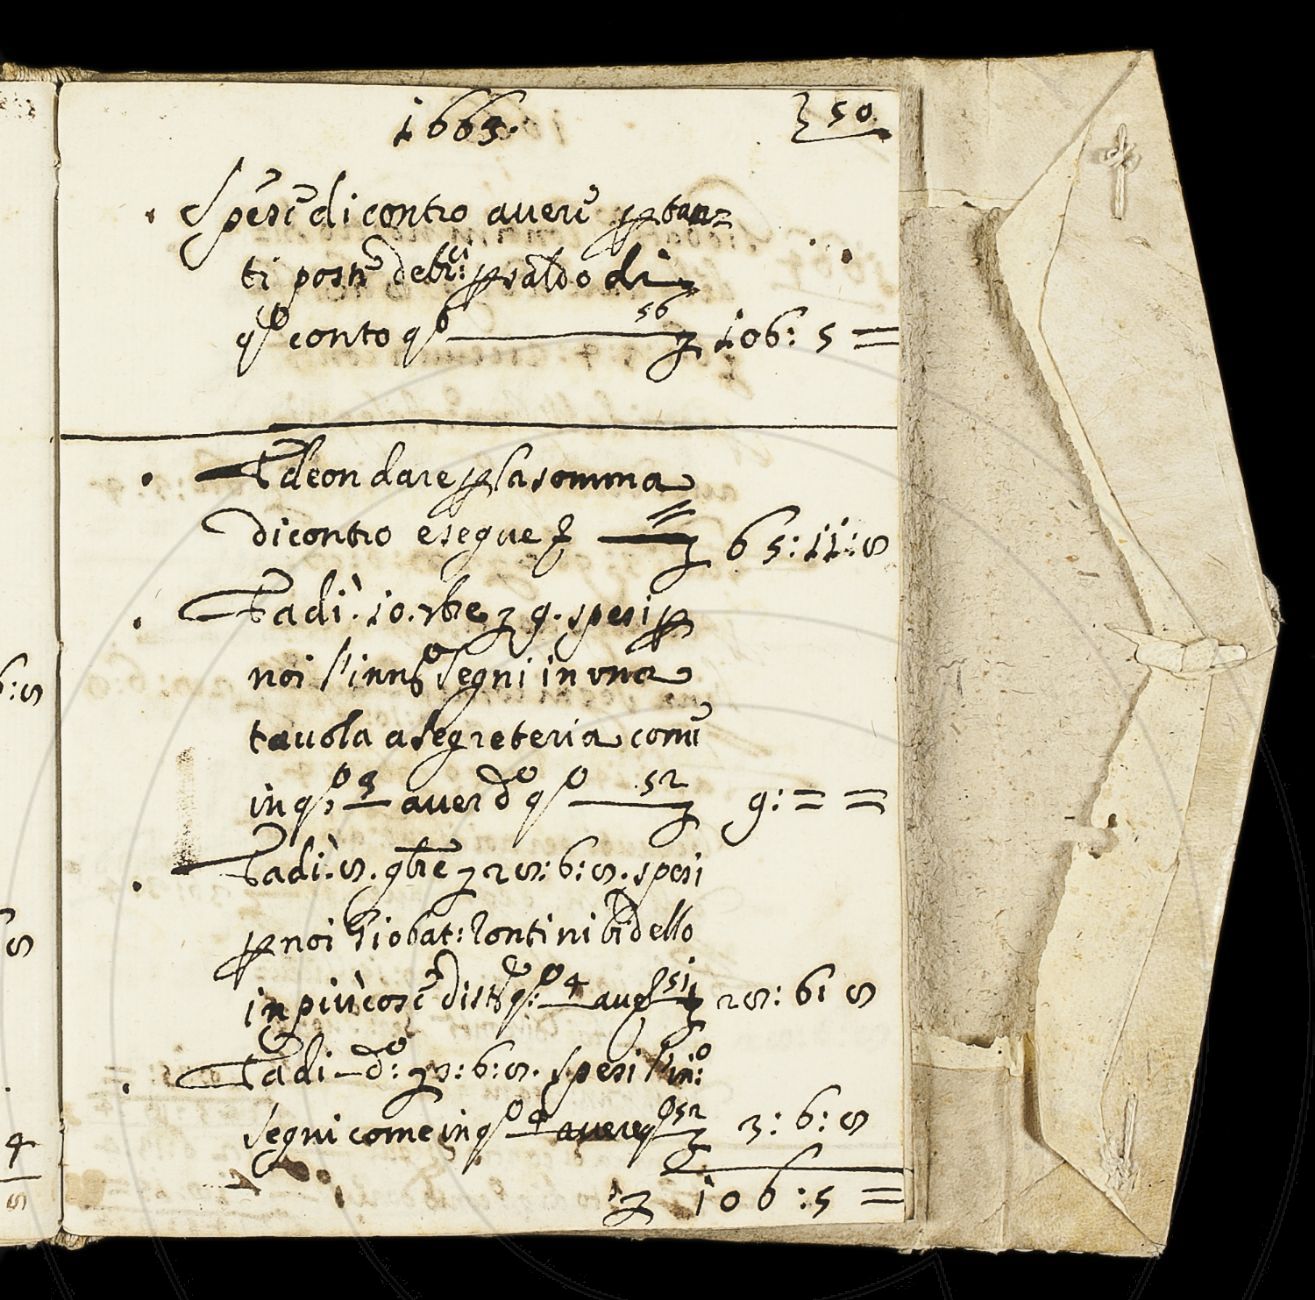 1663.
50
Spese di contro avere p tan=
ti posti debri: p saldo di
qo conto qo 56 106: 5 =
E deon dare p la somma
di contro e segue 65:11:8
E a di 10. 7bre 9. spesi p
noi l'innto Segni in una
tavola a segreteria come
in qo 3 aver do qo 52 9: = =
E a di 8. 9bre 28: 6: 8. spesi
p noi Giobat: Contini bidello
in più cose 4 51 28: 6: 8
E a di do: 3: 6: 8. spesi l'ino:
Segni come in qo 4 avere qo 52 3: 6: 8
106: 5 =
6:8
8
4